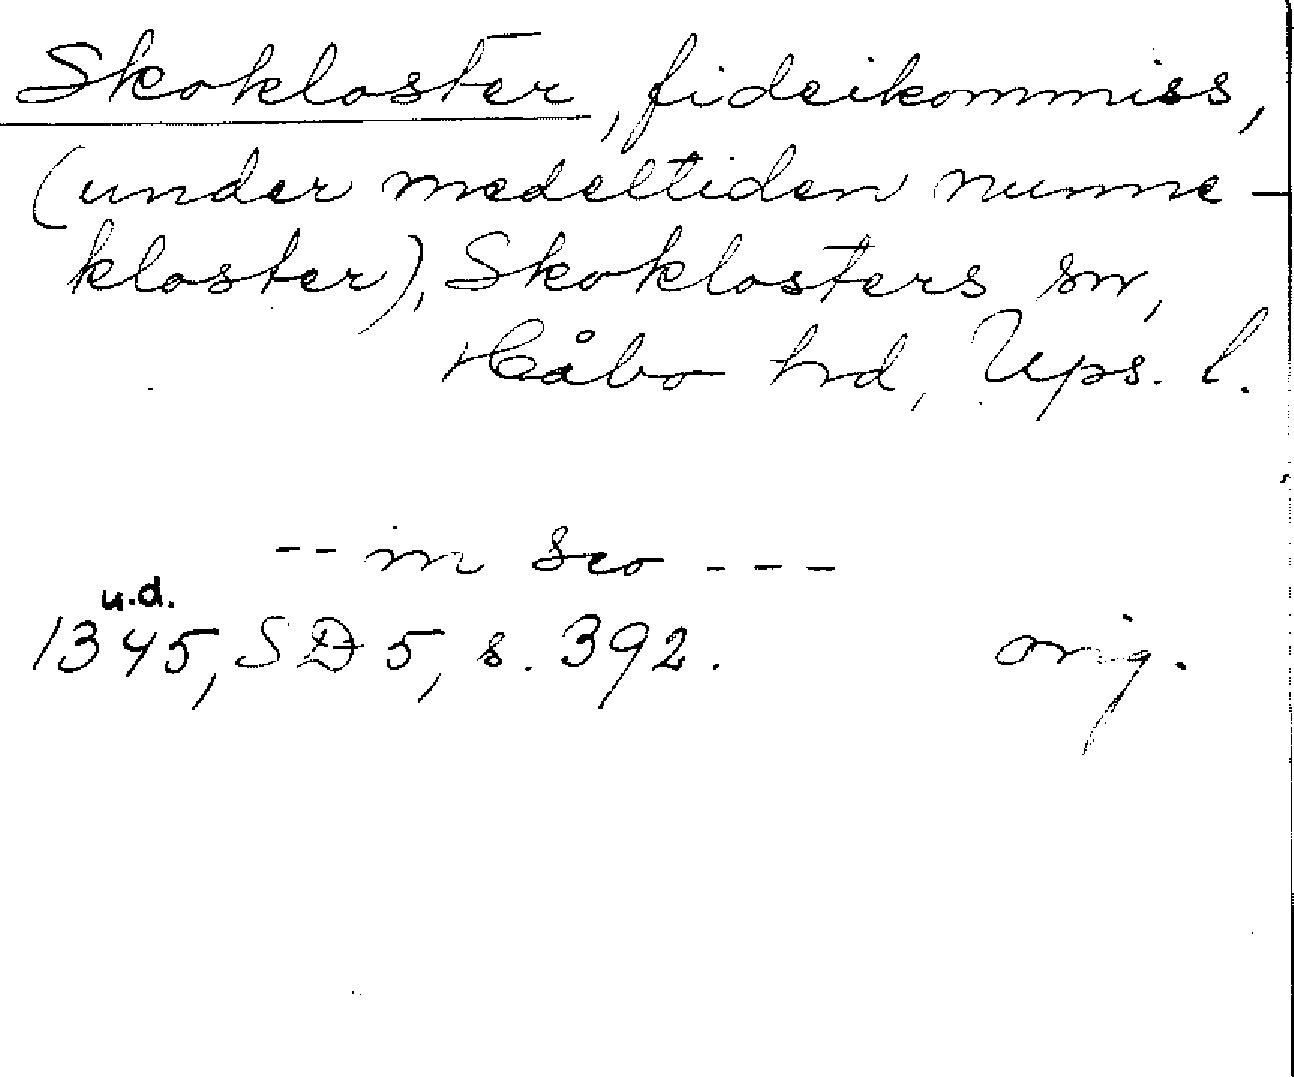 Skokloster, fideikommiss,
(under medeltiden nunne-
kloster), Skoklosters sn,
Håbo hd, Ups. l.
-- in sco ---
u.d.
1345, SD 5, s. 392. orig.